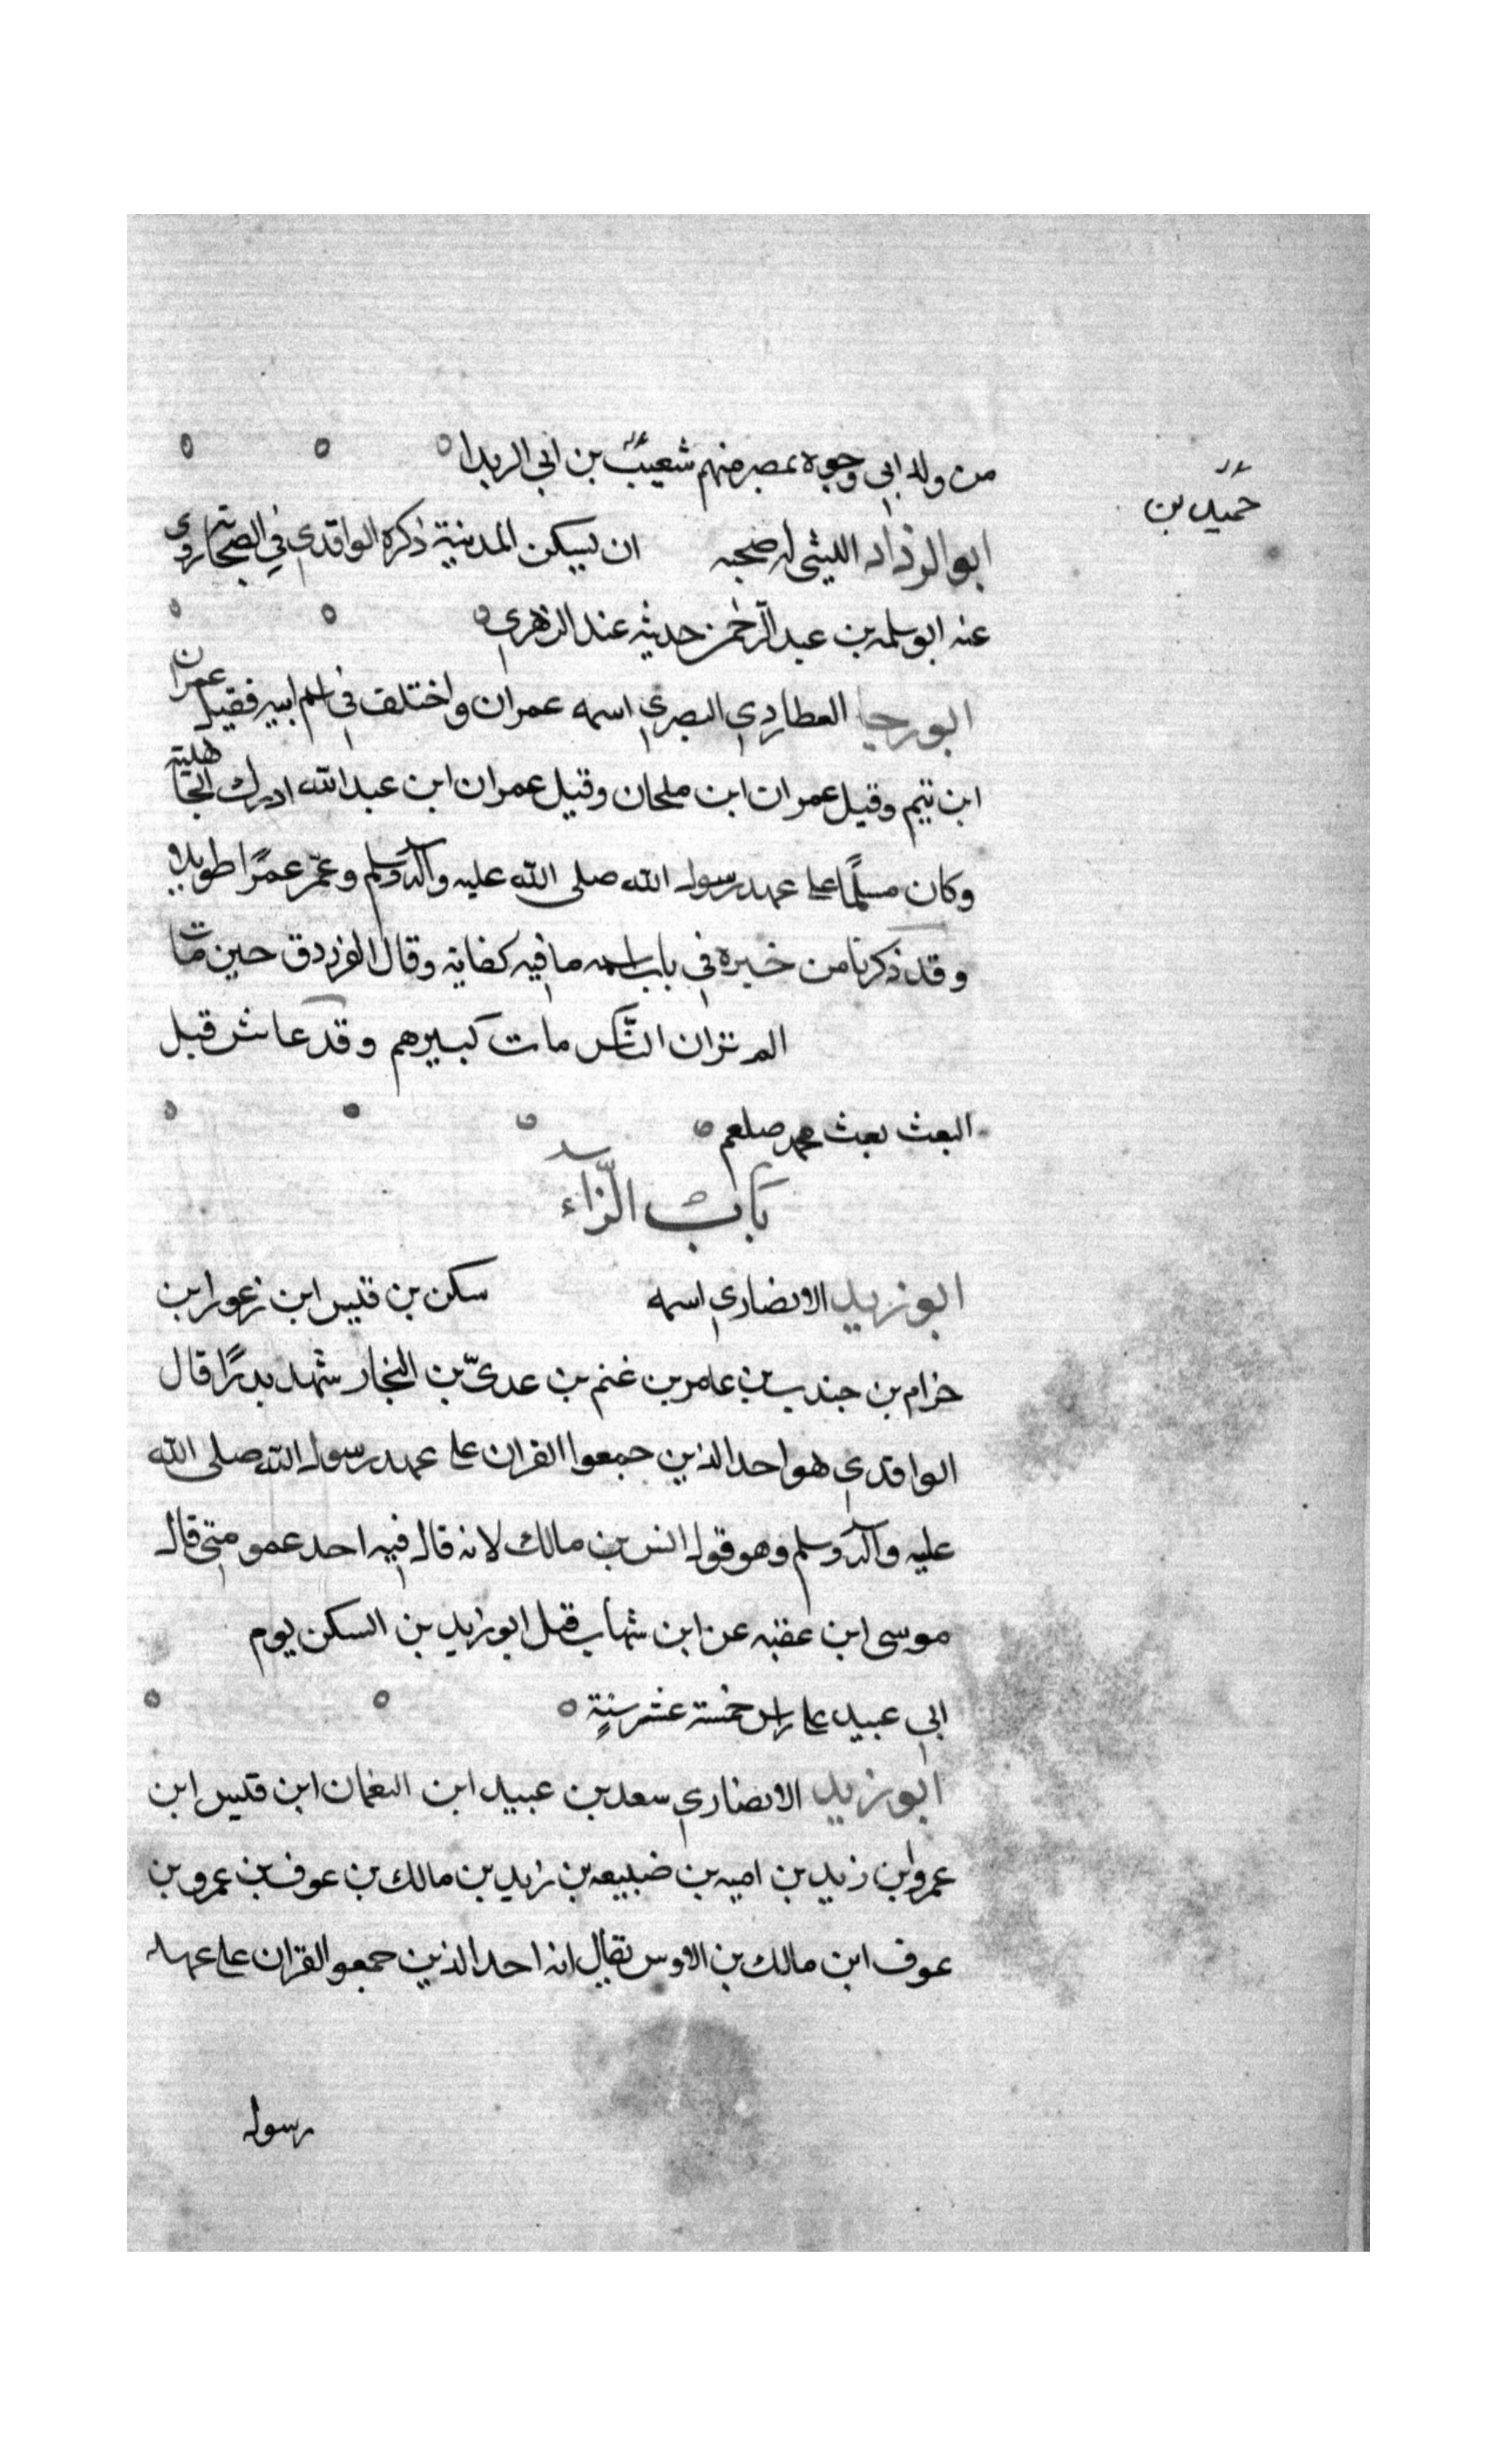 من ولد ابي وجوه بمصر منهم شعيب بن ابي الربدا
حميد بن
ابو الرداد الليثي له صحبه ان يسكن المدينة ذكره الواقدي في الصحابة روى
عنه ابو سلمه بن عبد الرحمن حديثه عند الزهري
ابو رجا العطاردي البصري اسمه عمران واختلف في اسم ابيه فقيل عمران
ابن تيم وقيل عمران ابن ملحان وقيل عمران ابن عبد الله ادرك الجاهلية
وكان مسلمًا على عهد رسول الله صلى الله عليه وآله وسلم وعمّر عمرًا طويلا
وقد ذكرنا من خبره في باب اسمه ما فيه كفاية وقال الفرزدق حين مات
الم تر ان الناس مات كبيرهم وقد عاش قبل
البعث بعث محمد صلعم
باب الزاء
ابو زيد الانصاري اسمه سكن بن قيس ابن زعورا بن
حرام بن جندب بن عامر بن غنم بن عديّ بن النجار شهد بدرًا قال
الواقدي هو احد الذين جمعوا القران على عهد رسول الله صلى الله
عليه وآله وسلم وهو قول انس بن مالك لانه قال فيه احد عمومتي قال
موسى ابن عقبه عن ابن شهاب قتل ابو زيد بن السكن يوم
ابي عبيد على راس خمسة عشر سنةٍ
ابو زيد الانصاري سعد بن عبيد ابن النعمان ابن قيس ابن
عمرو ابن زيد بن اميه بن ضبيعه بن زيد بن مالك بن عوف بن عمرو بن
عوف ابن مالك بن الاوس يقال انه احد الذين جمعو القران على عهد
رسول